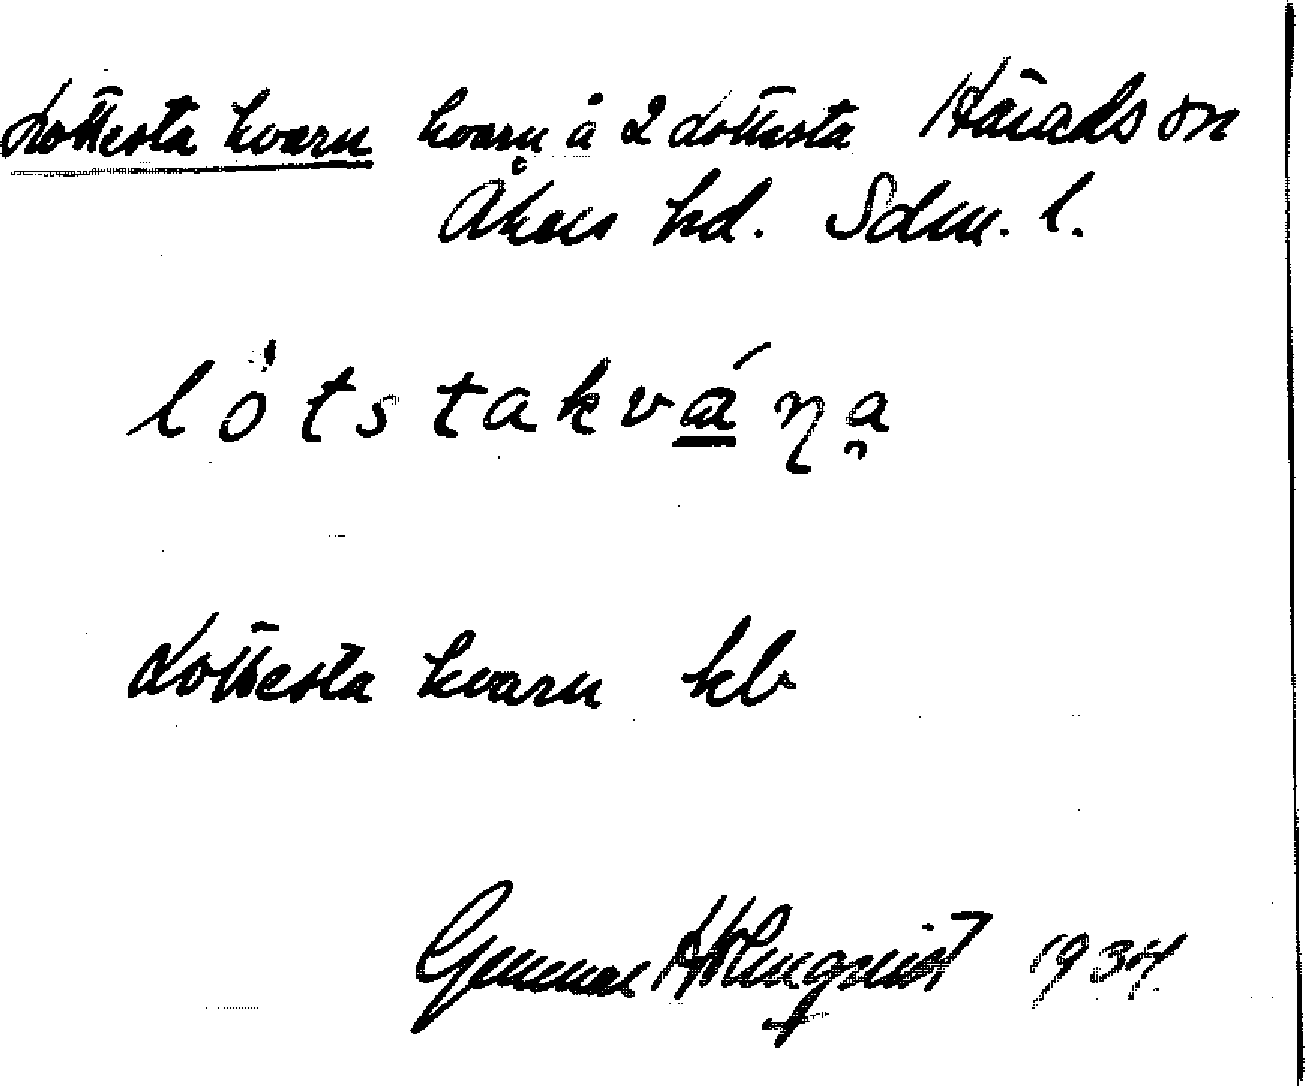 Lottesta kvarn kvarn å 2 Lottesta Häradsön
Åkers hd. Sdm. l.
lòtstakvána
Lottesta kvarn kb
Gunnar Holmqvist 1934